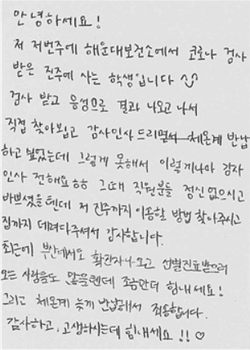 안녕하세요!
저 저번주에 해운대보건소에서 코로나 검사
받은 진주에 사는 학생입니다
검사 받고 음성으로 결과 나오고 나서
직접 찾아뵙고 감사인사 드리면서 체온계 반납
하고 싶었는데 그렇게 못해서 이렇게나마 감사
인사 전해요ㅎㅎ 그때 직원분들 정신 없으시고
바쁘셨을텐데 저 진주까지 이동할 방법 찾아주시고
집까지 데려다주셔서 감사합니다.
최근에 부산에서도 확진자 나오고 선별진료받으러
오는 사람들도 많을텐데 조금만 더 힘내세요!
그리고 체온계 늦게 반납해서 죄송합니다.
감사하고, 고생하시는데 힘내세요!! ♡